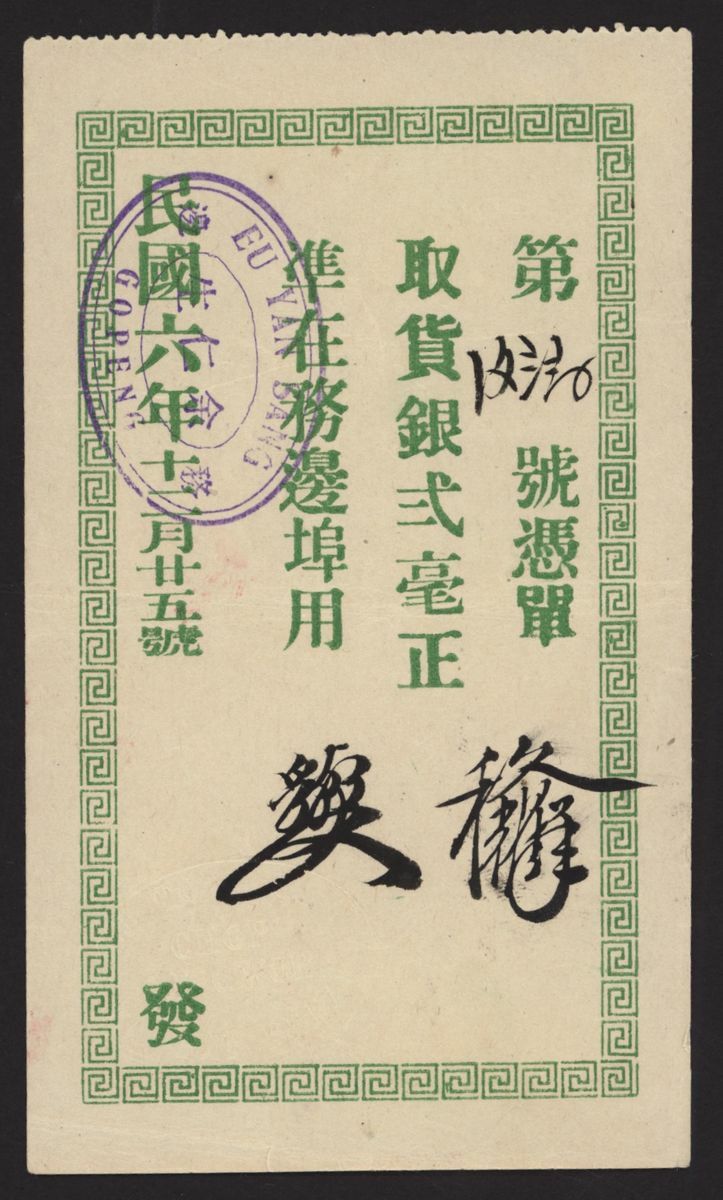 第 號憑單
取貨銀弍毫正
準在務邊埠用
民國六年十二月廿五號
發
EU YAN SANG
GOPENG
務邊
余仁生